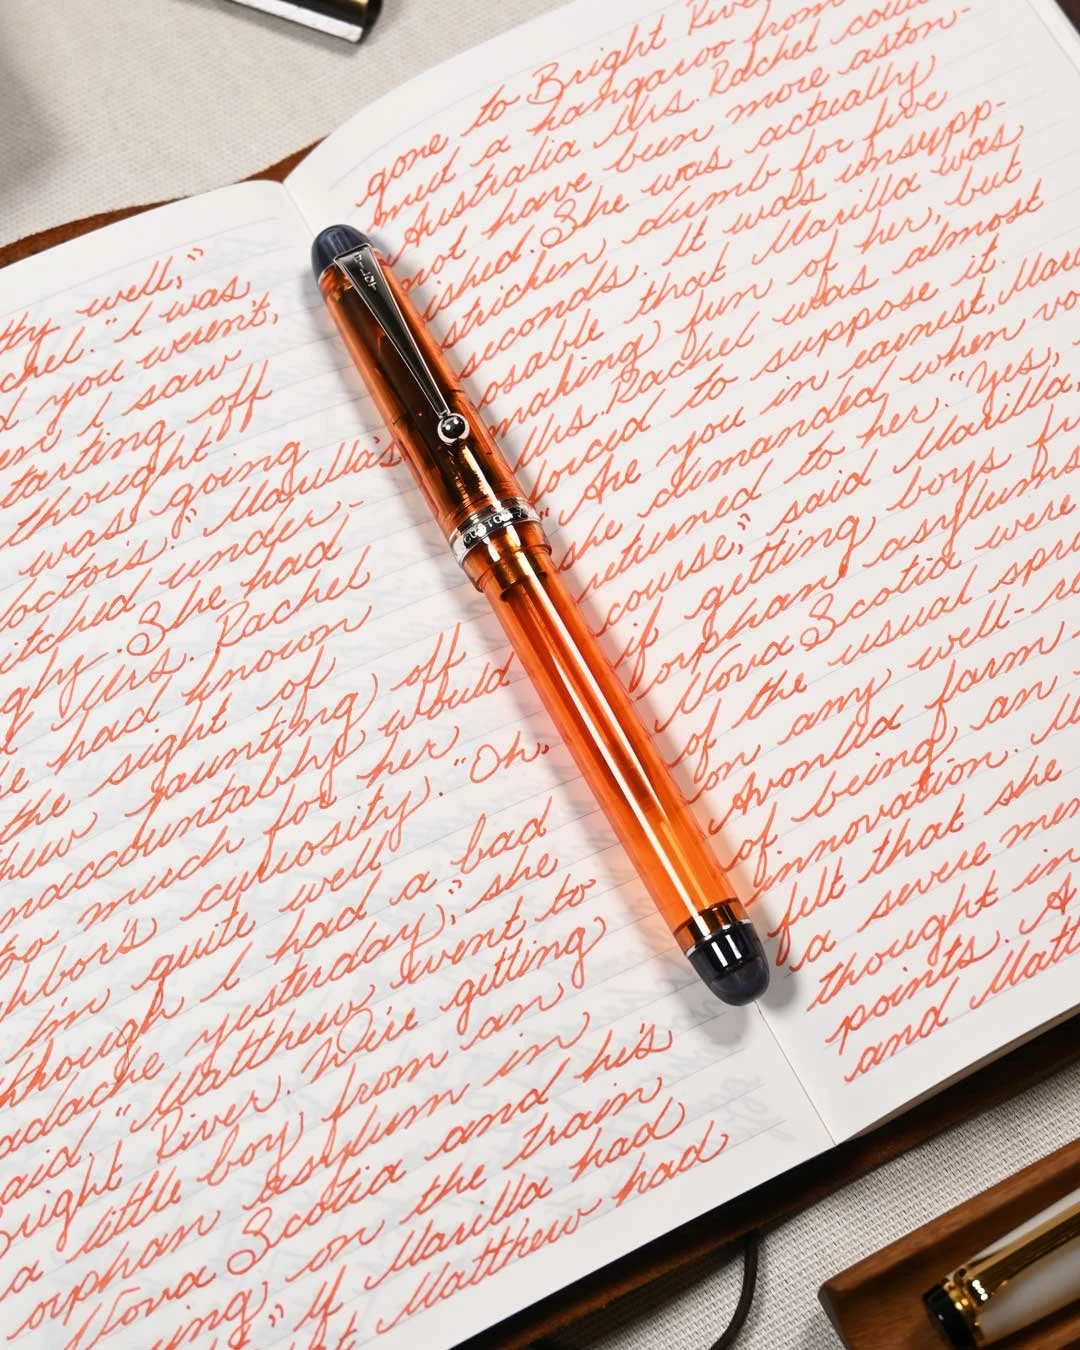 tty well,"
chel. "I was
d you weren't,
en I saw
starting off
thought
was going
octor's." Marilla's
itched under-
gly. She had
Mrs. Rachel
e had known
the sight of
hew jaunting off
naccountably would
oo much for her
ghbor's curiosity. "Oh,
I'm quite well
though I had a bad
adache yesterday," she
aid. "Matthew went to
Bright River. We're getting
a little boy from an
orphan asylum in
Nova Scotia and he's
ing on the train
" If Marilla had
t Matthew had
gone to Bright River
meet a kangaroo from
Australia Mrs. Rachel could
not have been more aston-
ished. She was actually
stricken dumb for five
seconds. It was unsupp-
osable that Marilla was
making fun of her, but
Mrs. Rachel was almost
forced to suppose it.
"Are you in earnest, Mari
she demanded when vo
returned to her. "Yes,
course," said Marilla,
if getting boys fr
orphan asylums
Nova Scotia were
of the usual spri
on any well-re
Avonlea farm
of being an
innovation. M
felt that she
a severe men
thought in
points. A
and Matt
PILOT
CUSTOM